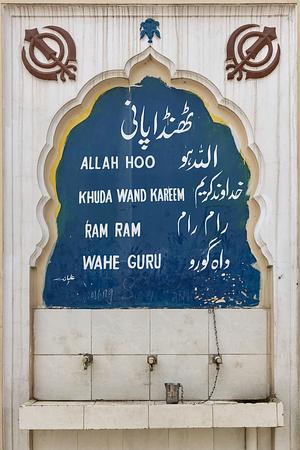 ٹھنڈا پانی
ALLAH HOO اللہ ہو
KHUDA WAND KAREEM خداوند کریم
RAM RAM رام رام
WAHE GURU واہ گورو